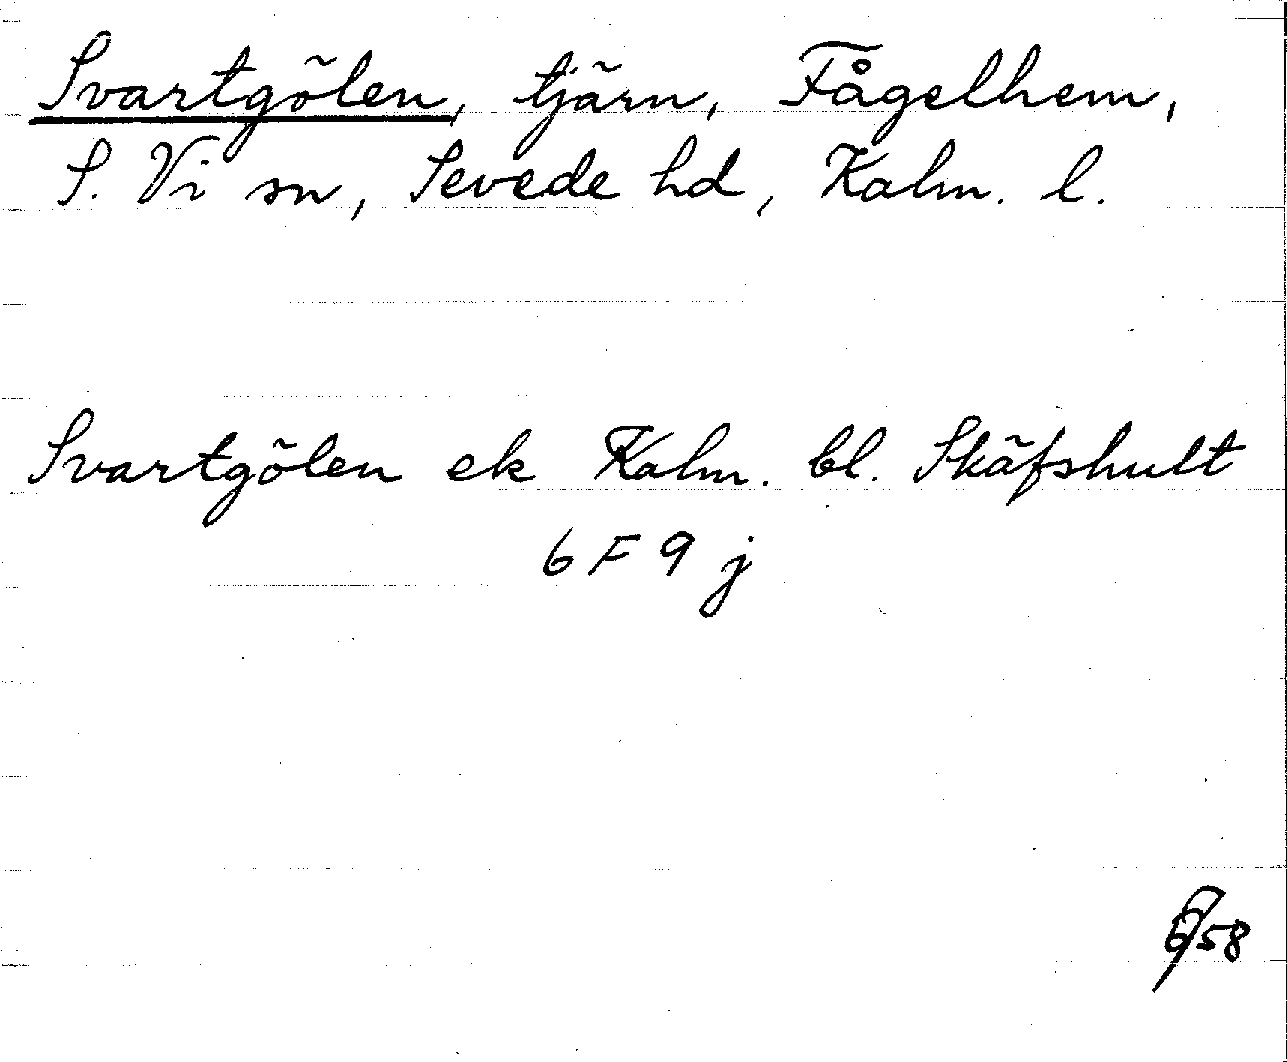 Svartgölen, tjärn, Fågelhem,
S. Vi sn, Sevede hd, Kalm. l.
Svartgölen ek Kalm. bl. Skäfshult
6 F 9 j
58